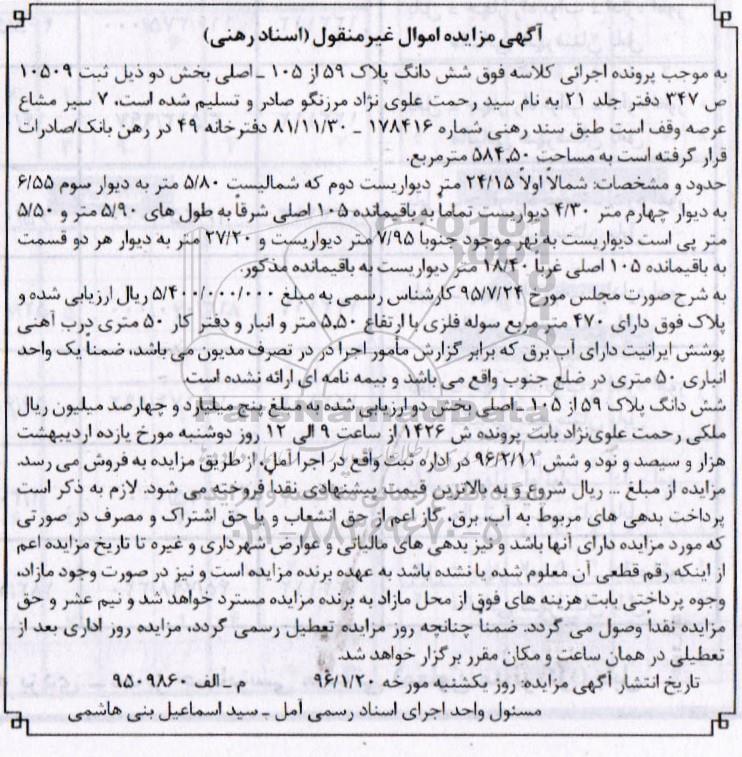 آگهی مزایده اموال غیر منقول (اسناد رهنی)
به موجب پرونده اجرائی کلاسه فوق شش دانگ پلاک ۵۹ از ۱۰۵ ـ اصلی بخش دو ذیل ثبت ۱۰۵۰۹
ص ۳۴۷ دفتر جلد ۲۱ به نام سید رحمت علوی نژاد مرزنگو صادر و تسلیم شده است. ۷ سیر مشاع
عرصه وقف است طبق سند رهنی شماره ۱۷۸۴۱۶ ـ ۸۱/۱۱/۳۰ دفترخانه ۴۹ در رهن بانک/صادرات
قرار گرفته است به مساحت ۵۸۴,۵۰ مترمربع.
حدود و مشخصات: شمالاً اولاً ۲۴/۱۵ متر دیواریست دوم که شمالیست ۵/۸۰ متر به دیوار سوم ۶/۵۵
به دیوار چهارم متر ۴/۳۰ دیواریست تماماً به باقیمانده ۱۰۵ اصلی شرقاً به طول های ۵/۹۰ متر و ۵/۵۰
متر پی است دیواریست به نهر موجود جنوباً ۷/۹۵ متر دیواریست و ۲۷/۲۰ متر به دیوار هر دو قسمت
به باقیمانده ۱۰۵ اصلی غرباً ۱۸/۴۰ متر دیواریست به باقیمانده مذکور.
به شرح صورت مجلس مورخ ۹۵/۷/۲۴ کارشناس رسمی به مبلغ ۵/۴۰۰/۰۰۰/۰۰۰ ریال ارزیابی شده و
پلاک فوق دارای ۴۷۰ متر مربع سوله فلزی با ارتفاع ۵,۵۰ متر و انبار و دفتر کار ۵۰ متری درب آهنی
پوشش ایرانیت دارای آب برق که برابر گزارش مأمور اجرا در در تصرف مدیون می باشد، ضمناً یک واحد
انباری ۵۰ متری در ضلع جنوب واقع می باشد و بیمه نامه ای ارائه نشده است.
شش دانگ پلاک ۵۹ از ۱۰۵ ـ اصلی بخش دو ارزیابی شده به مبلغ پنج میلیارد و چهارصد میلیون ریال
ملکی رحمت علوی‌نژاد بابت پرونده ش ۱۴۲۶ از ساعت ۹ الی ۱۲ روز دوشنبه مورخ یازده اردیبهشت
هزار و سیصد و نود و شش ۹۶/۲/۱۱ در اداره ثبت واقع در اجرا آمل. از طریق مزایده به فروش می رسد.
مزایده از مبلغ ... ریال شروع و به بالاترین قیمت پیشنهادی نقداً فروخته می شود. لازم به ذکر است
پرداخت بدهی های مربوط به آب، برق، گاز اعم از حق انشعاب و یا حق اشتراک و مصرف در صورتی
که مورد مزایده دارای آنها باشد و نیز بدهی های مالیاتی و عوارض شهرداری و غیره تا تاریخ مزایده اعم
از اینکه رقم قطعی آن معلوم شده یا نشده باشد به عهده برنده مزایده است و نیز در صورت وجود مازاد،
وجوه پرداختی بابت هزینه های فوق از محل مازاد به برنده مزایده مسترد خواهد شد و نیم عشر و حق
مزایده نقداً وصول می گردد. ضمناً چنانچه روز مزایده تعطیل رسمی گردد. مزایده روز اداری بعد از
تعطیلی در همان ساعت و مکان مقرر برگزار خواهد شد.
تاریخ انتشار آگهی مزایده: روز یکشنبه مورخه ۹۶/۱/۲۰ م ـ الف ۹۵۰۹۸۶۰
مسئول واحد اجرای اسناد رسمی آمل ـ سید اسماعیل بنی هاشمی
ParsNamadData
۰۲۱-۸۸۳۴۹۶۷۰-۵